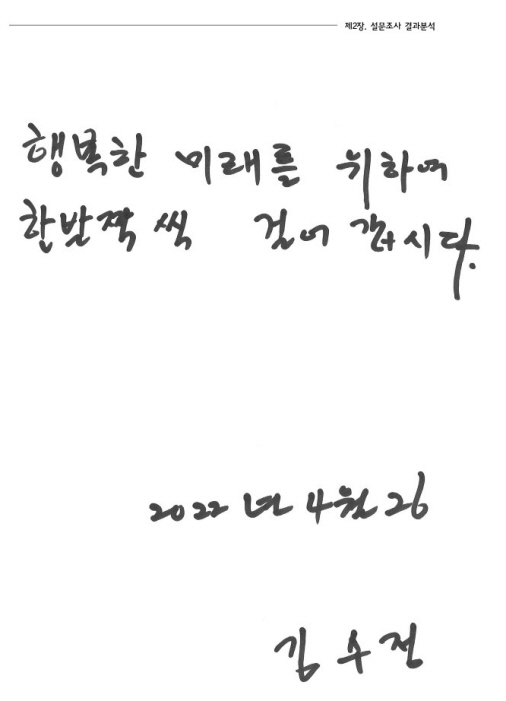 제2장. 설문조사 결과분석
행복한 미래를 위하여
한반짝 씩 걸어 갑시다.
2022 년 4월 26
김 수전